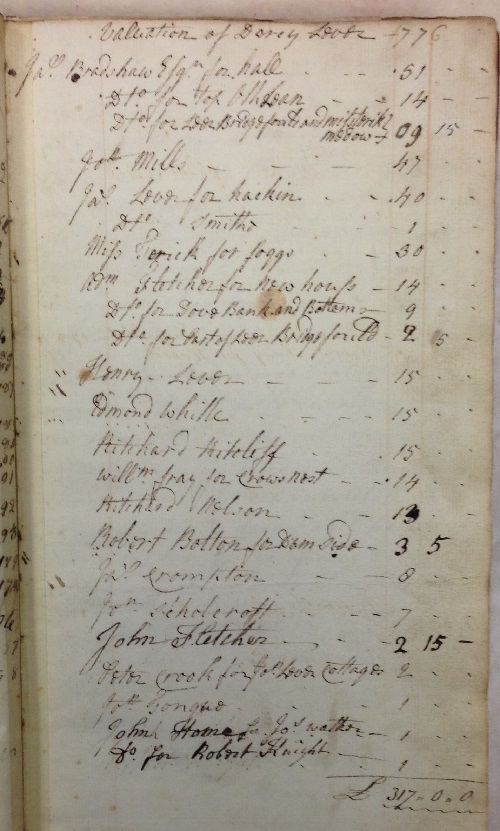 Valuation of Darcy Lever 1776
Jas. Bradshaw Esqr. for hall - - - 51 - -
Dto. for top - - 14 - -
Dto. for Leer Bridge and miss
medow - 09 15 -
Jon. Mills - - - 47 - -
Jas. Lever for hackin - - 40 - -
Dto. Smiths - - 1 - -
Miss for foggs - - 30 - -
Adm. Fletcher for New houss - 14 - -
Dto. for Dove Bank and Bottoms - 9 - -
Dto. for Part of Leer Bridge - 2 5 -
Henry Lever - - - 15 - -
Edmond Whittle - - - 15 - -
Ritchard - - 15 - -
Willm. Gray for Crows Nest - - 14 - -
Ritchard Nelson - - 13 - -
Robert Bolton for Dam Side - 3 5 -
Jas. Crompton - - - 8 - -
Jon. Scholcroft - - 7 - -
John Fletcher - - - 2 15 -
Peter Crook for Jos. Lever Cottages 2 - -
Jon. Gongue - - - 1 - -
John for Jos. - 1 - -
Do. for Robert Knight - - 1 - -
£ 317 " 0 " 0